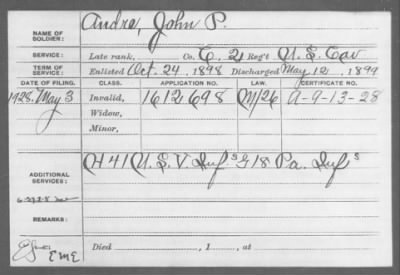 NAME OF SOLDIER: Andre, John P.
SERVICE: Late rank, Co. E. 21 Reg't U.S. Cav
TERM OF SERVICE: Enlisted Oct. 24, 1898 Discharged May 12, 1899
DATE OF FILING. CLASS. APPLICATION NO. LAW. CERTIFICATE NO.
1928. May 3 Invalid, 1612698 M/26 A-9-13-28
Widow,
Minor,
ADDITIONAL SERVICES: H 41 U.S.V. Inf. & G 18 Pa. Inf.
REMARKS:
EME
Died , 1 , at